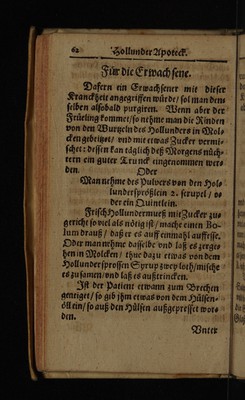 62 Hollunder Apoteck.
Für die Erwachsene.
Dafern ein Erwachsener mit dieser
Kranckheit angegriffen würde/ sol man dem
selben alsobald purgiren. Wenn aber der
Früeling kommet/ so nehme man die Rinden
von den Wurtzeln des Hollunders in Mol-
cken gebeitzet/ und mit etwas Zucker vermi-
schet: dessen kan täglich deß Morgens nüch-
tern ein guter Trunck eingenommen wer-
den. Oder
Man nehme des Pulvers von den Hol-
lundersprößlein 2. scrupel/ o-
der ein Quintlein.
Frisch Hollundermueß mit Zucker zu-
gericht so viel als nötig ist/ mache einen Bo-
lum drauß/ daß er es auff einmahl auffesse.
Oder man nehme dasselbe und laß es zerge-
hen in Molcken/ thue dazu etwas von dem
Hollundersprossen Syrup zwey loth/ mische
es zusamen/ und laß es außtrincken.
Ist der Patient etwann zum Brechen
geneiget/ so gib jhm etwas von dem Hülsen-
öll ein/ so auß den Hülsen außgepresset wor-
den.
Unter